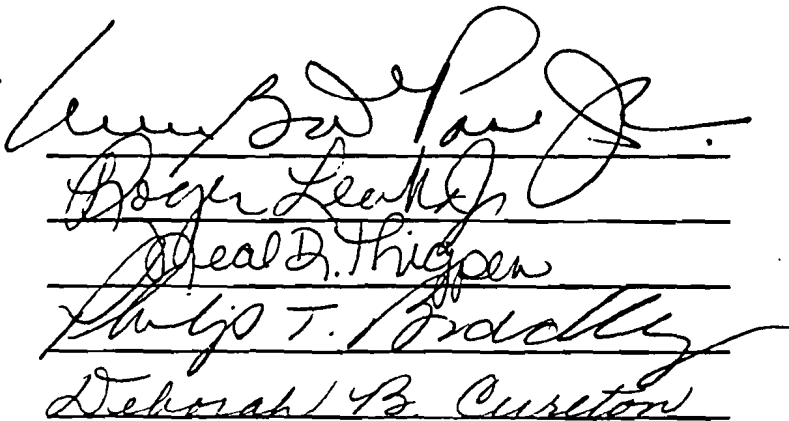 Jr.
Roger Leaks Jr
Neal D. Thigpen
Philip T. Bradley
Deborah B. Cureton